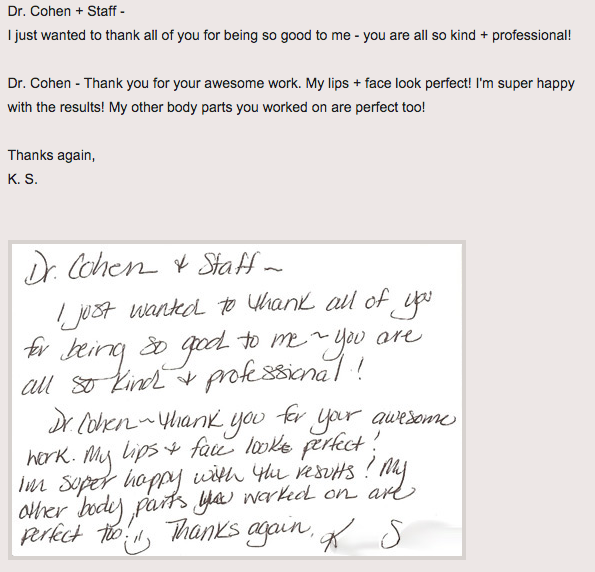 Dr. Cohen + Staff -
I just wanted to thank all of you for being so good to me - you are all so kind + professional!
Dr. Cohen - Thank you for your awesome work. My lips + face look perfect! I'm super happy
with the results! My other body parts you worked on are perfect too!
Thanks again,
K. S.
Dr. Cohen & Staff ~
I just wanted to thank all of you
for being so good to me ~ you are
all so kind & professional!
Dr. Cohen ~ thank you for your awesome
work. My lips & face looks perfect!
Im super happy with the results! My
other body parts you worked on are
perfect too! :) Thanks again, K S